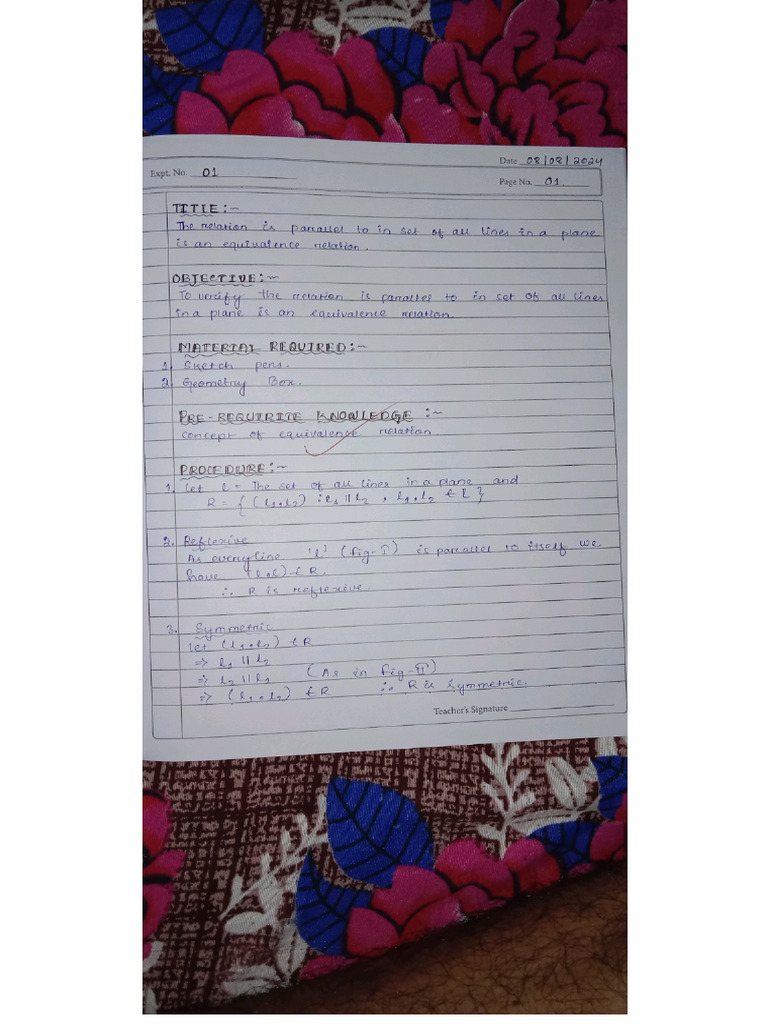 Date 08/08/2024
Expt. No. 01
Page No. 01.
TITLE:-
The relation is parallel to in set of all lines in a plane
is an equivalence relation.
OBJECTIVE:-
To verify the relation is parallel to in set of all lines
in a plane is an equivalence relation.
MATERIAL REQUIRED:-
1. Sketch pens.
2. Geometry Box.
PRE-REQUIRITE KNOWLEDGE :-
concept of equivalence relation.
PROCEDURE:-
1. Let L = The set of all lines in a plane and
R = { (l₁, l₂) : l₁ || l₂ , l₁, l₂ ∈ L }
2. Reflexive
As every line 'l' (fig-I) is parallel to itself we
have (l, l) ∈ R.
∴ R is reflexive.
3. Symmetric
Let (l₁, l₂) ∈ R
⇒ l₁ || l₂
⇒ l₂ || l₁ (As in fig-II)
⇒ (l₁, l₂) ∈ R ∴ R is Symmetric.
Teacher's Signature